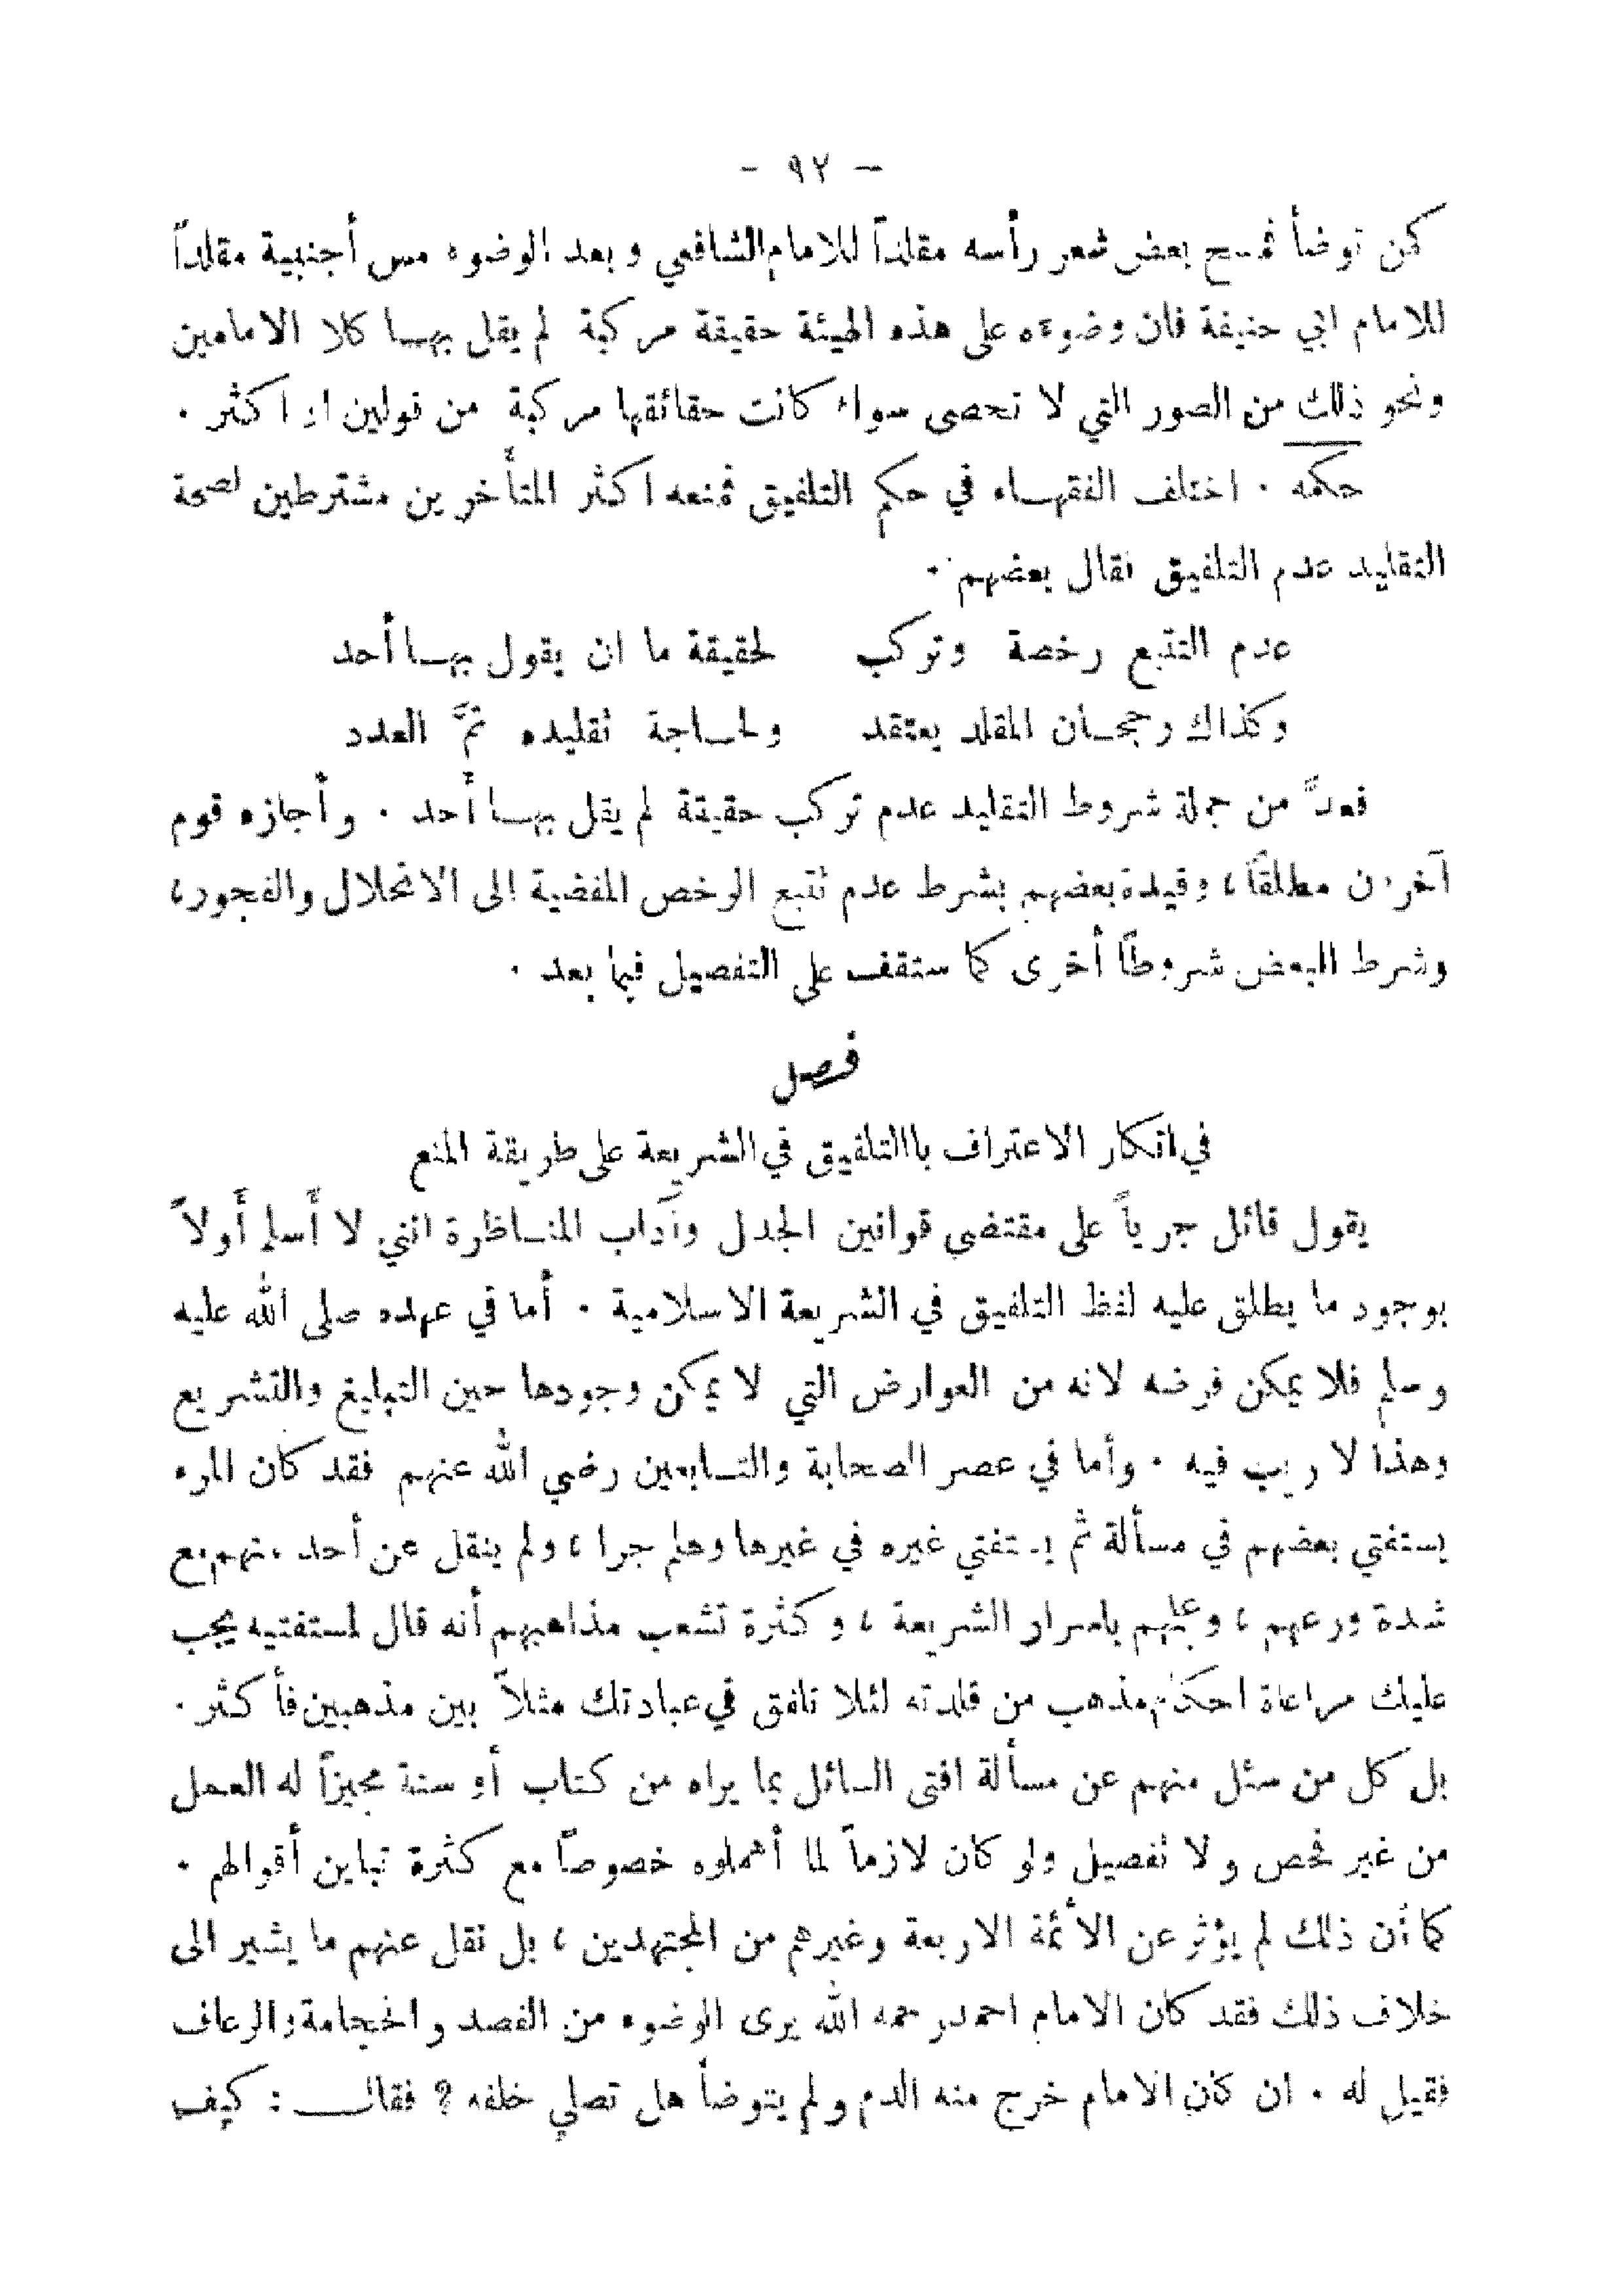 - ٩٢ -
كمن توضأ فمسح بعض شعر رأسه مقلداً للامام الشافعي وبعد الوضوء مس أجنبية مقلداً
للامام ابي حنيفة فان وضوءه على هذه الهيئة حقيقة مركبة لم يقل بها كلا الامامين
ونحو ذلك من الصور التي لا تحصى سواء كانت حقائقها مركبة من قولين او اكثر .
حكمه . اختلف الفقهاء في حكم التلفيق فمنعه اكثر المتأخرين مشترطين لصحة
التقليد عدم التلفيق فقال بعضهم .
عدم التتبع رخصة وتركب لحقيقة ما ان يقول بها أحد
وكذاك رجحان المقلد يعتقد ولحاجة تقليده تمَّ العدد
فعدَّ من جملة شروط التقليد عدم تركب حقيقة لم يقل بها أحد . وأجازه قوم
آخرون مطلقاً ، وقيده بعضهم بشرط عدم تتبع الرخص المفضية الى الانحلال والفجور ،
وشرط البعض شروطاً أخرى كما ستقف على التفصيل فيما بعد .
فصل
في انكار الاعتراف باالتلفيق في الشريعة على طريقة المنع
يقول قائل جرياً على مقتضى قوانين الجدل وآداب المناظرة انني لا أسلم أولاً
بوجود ما يطلق عليه لفظ التلفيق في الشريعة الاسلامية . أما في عهده صلى الله عليه
وسلم فلا يمكن فرضه لانه من العوارض التي لا يمكن وجودها حين التبليغ والتشريع
وهذا لا ريب فيه . وأما في عصر الصحابة والتابعين رضي الله عنهم فقد كان المرء
يستفتي بعضهم في مسألة ثم يستفتي غيره في غيرها وهلم جرا ، ولم ينقل عن أحد منهم مع
شدة ورعهم ، وعلمهم باسرار الشريعة ، وكثرة تشعب مذاهبهم أنه قال لمستفتيه يجب
عليك مراعاة احكام مذهب من قلدته لئلا تلفق في عبادتك مثلاً بين مذهبين فأكثر .
بل كل من سئل منهم عن مسألة افتى السائل بما يراه من كتاب أو سنة مجيزاً له العمل
من غير فحص ولا تفصيل ولو كان لازماً لما أهملوه خصوصاً مع كثرة تباين أقوالهم .
كما أن ذلك لم يؤثر عن الأئمة الاربعة وغيرهم من المجتهدين ، بل نقل عنهم ما يشير الى
خلاف ذلك فقد كان الامام احمد رحمه الله يرى الوضوء من الفصد والحجامة والرعاف
فقيل له . ان كان الامام خرج منه الدم ولم يتوضأ هل تصلي خلفه ؟ فقال : كيف